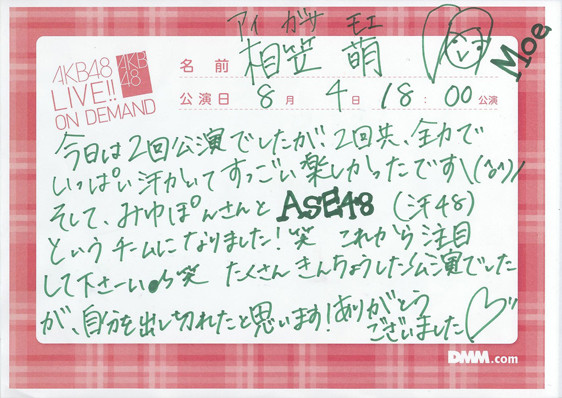 アイ ガサ モエ
AKB48
LIVE!!
ON DEMAND
AKB
48
名前 相笠 萌
Moe
公演日 8月 4日 18:00公演
今日は2回公演でしたが!2回共、全力で
いっぱい汗かいてすっごい楽しかったです\(^^)/
そして、みゆぽんさんと ASE48 (汗48)
というチームになりました!笑 これから注目
して下さーい♪笑 たくさんきんちょうした公演でした
が、自分を出し切れたと思います!ありがとう
ございました♡
DMM.com